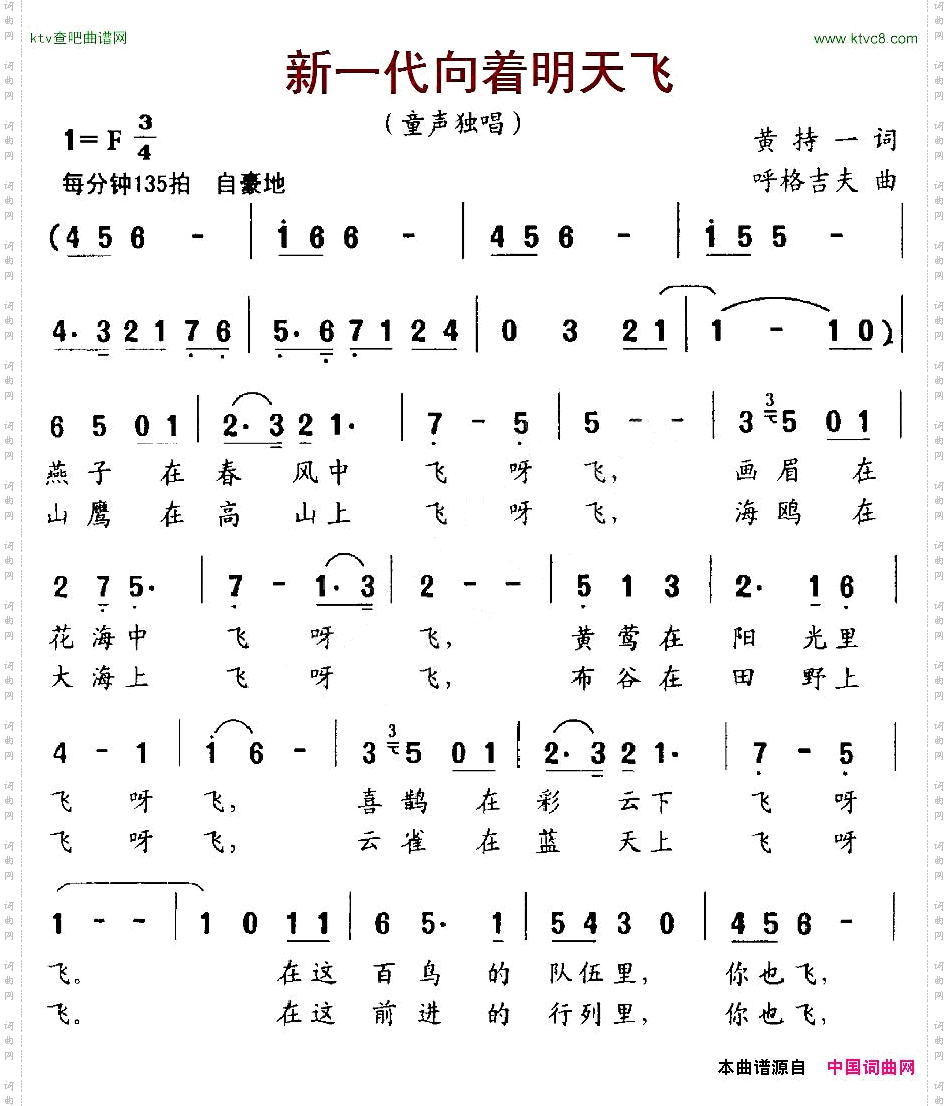 ktv查吧曲谱网 www.ktvc8.com
新一代向着明天飞
（童声独唱）
1=F 3/4
黄持一 词
每分钟135拍 自豪地
呼格吉夫 曲
(4 5 6 - | i 6 6 - | 4 5 6 - | i 5 5 -
4· 3 2 1 7 6 | 5· 6 7 1 2 4 | 0 3 2 1 | 1 - 1 0) |
6 5 0 1 | 2· 3 2 1· | 7 - 5 | 5 - - | 3 3 5 0 1 |
燕子 在春 风中 飞 呀 飞， 画眉 在
山鹰 在高 山上 飞 呀 飞， 海鸥 在
2 7 5· | 7 - 1· 3 | 2 - - | 5 1 3 | 2· 1 6 |
花海中 飞 呀 飞， 黄莺在 阳 光里
大海上 飞 呀 飞， 布谷在 田 野上
4 - 1 | i 6 - | 3 3 5 0 1 | 2· 3 2 1· | 7 - 5 |
飞 呀 飞， 喜鹊 在 彩 云下 飞 呀
飞 呀 飞， 云雀 在 蓝 天上 飞 呀
1 - - | 1 0 1 1 | 6 5· 1 | 5 4 3 0 | 4 5 6 - |
飞。 在这 百鸟 的 队伍里， 你也飞，
飞。 在这 前进 的 行列里， 你也飞，
本曲谱源自 中国词曲网